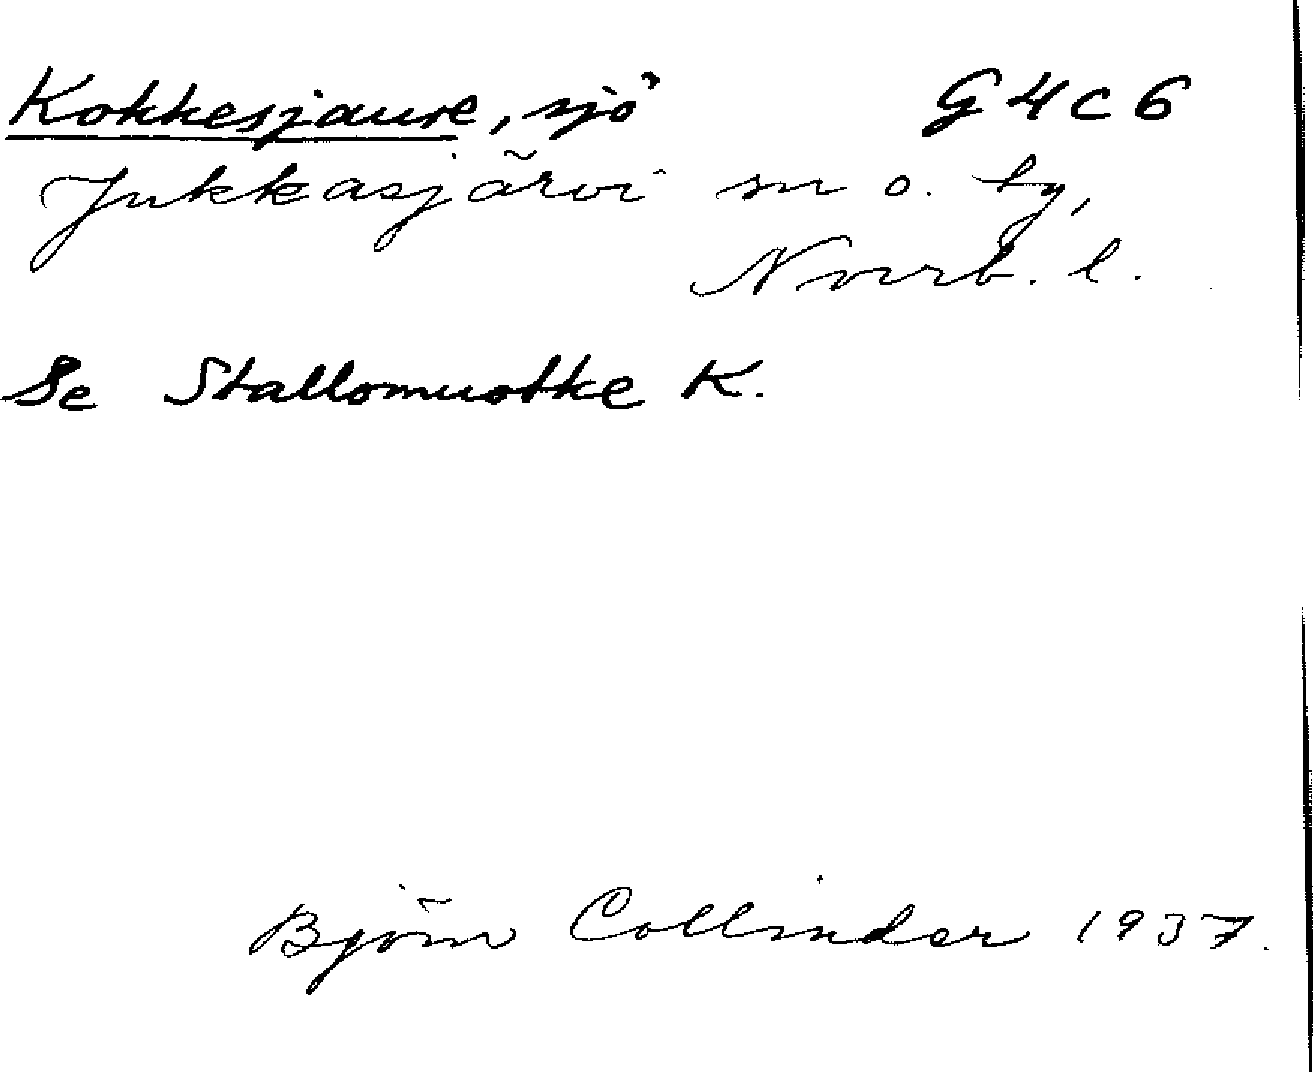 Kokkesjaure, sjö G 4 c 6
Jukkasjärvi sn o. ty,
Norrb. l.
Se Stallomuotke K.
Björn Collinder 1937.